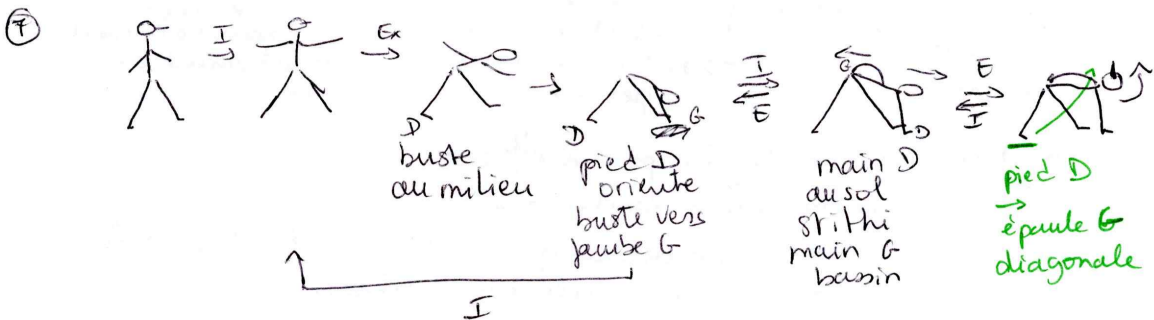 7
I
Ex
I
E
E
I
G
D
D
G
D
buste
au milieu
pied D
oriente
buste vers
jambe G
main D
au sol
sthiti
main G
bassin
pied D
→
épaule G
diagonale
I